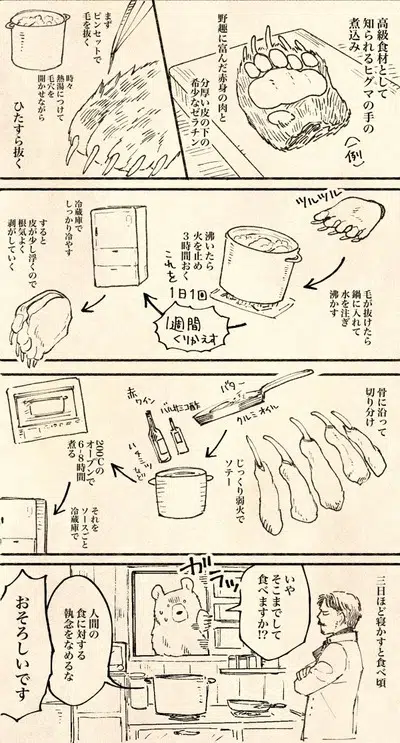 高級食材として
知られるヒグマの手の
煮込み
(例)
野趣に富んだ赤身の肉と
分厚い皮の下の
希少なゼラチン
まず
ピンセットで
毛を抜く
時々
熱湯につけて
毛穴を
開かせながら
ひたすら抜く
ツルツル
毛が抜けたら
鍋に入れて
水を注ぎ
沸かす
沸いたら
火を止め
3時間おく
これを
1日1回
1週間
くりかえす
冷蔵庫で
しっかり冷やす
すると
皮が少し浮くので
根気よく
剥がしていく
骨に沿って
切り分け
バター
クルミオイル
じっくり弱火で
ソテー
バルサミコ酢
赤ワイン
ハチミツなど
200℃の
オーブンで
6-8時間
煮る
それを
ソースごと
冷蔵庫で
三日ほど寝かすと食べ頃
ガラッ
いや
そこまでして
食べますか!?
人間の
食に対する
執念をなめるな
おそろしいです